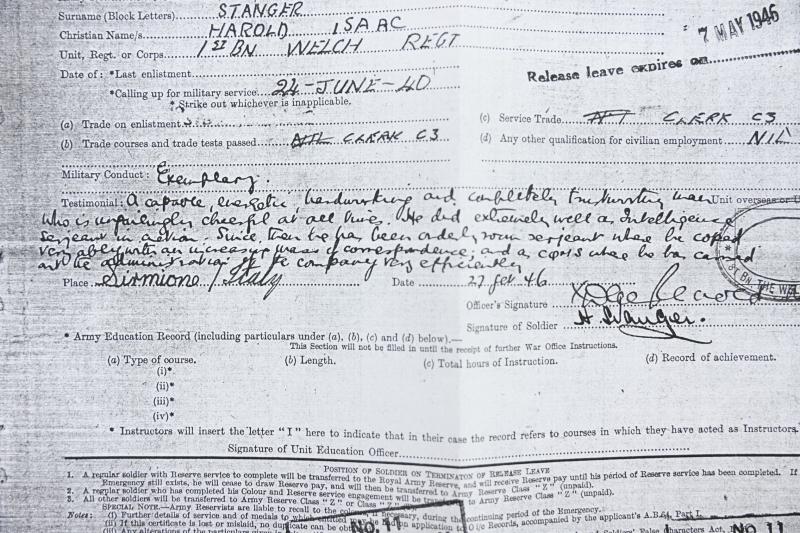 Surname (Block Letters) STANGER
Christian Name/s HAROLD ISAAC
7 MAY 1946
Unit, Regt. or Corps 1ST BN WELCH REGT
Release leave expires on
Date of : *Last enlistment
*Calling up for military service 24-JUNE-40
* Strike out whichever is inapplicable.
(a) Trade on enlistment
(c) Service Trade CLERK C3
(b) Trade courses and trade tests passed CLERK C3
(d) Any other qualification for civilian employment NIL
Military Conduct : Exemplary.
Testimonial: A capable, energetic, hardworking and completely trustworthy man Unit overseas or
who is unfailingly cheerful at all times. He did extremely well as Intelligence
Sergeant in action. Since then he has been orderly room sergeant where he coped
very ably with an increasing mass of correspondence; and a CQMS where he has carried
out the administration of the company very efficiently
Place Sirmione / Italy Date 27 Feb 46
BN. THE WEL
Officer's Signature
Signature of Soldier H Stanger.
* Army Education Record (including particulars under (a), (b), (c) and (d) below).—
This Section will not be filled in until the receipt of further War Office Instructions.
(a) Type of course. (b) Length. (c) Total hours of Instruction. (d) Record of achievement.
(i)*
(ii)*
(iii)*
(iv)*
* Instructors will insert the letter "I" here to indicate that in their case the record refers to courses in which they have acted as Instructors.
Signature of Unit Education Officer
POSITION OF SOLDIER ON TERMINATON OF RELEASE LEAVE
1. A regular soldier with Reserve service to complete will be transferred to the Royal Army Reserve, and will receive Reserve pay until his period of Reserve service has been completed. If
Emergency still exists, he will cease to draw Reserve pay, and will then be transferred to Army Reserve Class "Z" (unpaid).
2. A regular soldier who has completed his Colour and Reserve service engagement will be transferred to Army Reserve Class "Z" (unpaid).
3. All other soldiers will be transferred to Army Reserve Class "Z" or Class
SPECIAL NOTE.—Army Reservists are liable to recall to the colours, if necessary, during the continuing period of the Emergency.
Notes: (i) Further details of service and of medals to which entitled
(ii) If this certificate is lost or mislaid, no duplicate can be on application to O i/c Records, accompanied by the applicant's A.B.64, Part I.
No. 11
(iii) Any alterations of the particulars Characters Act,
No. 11